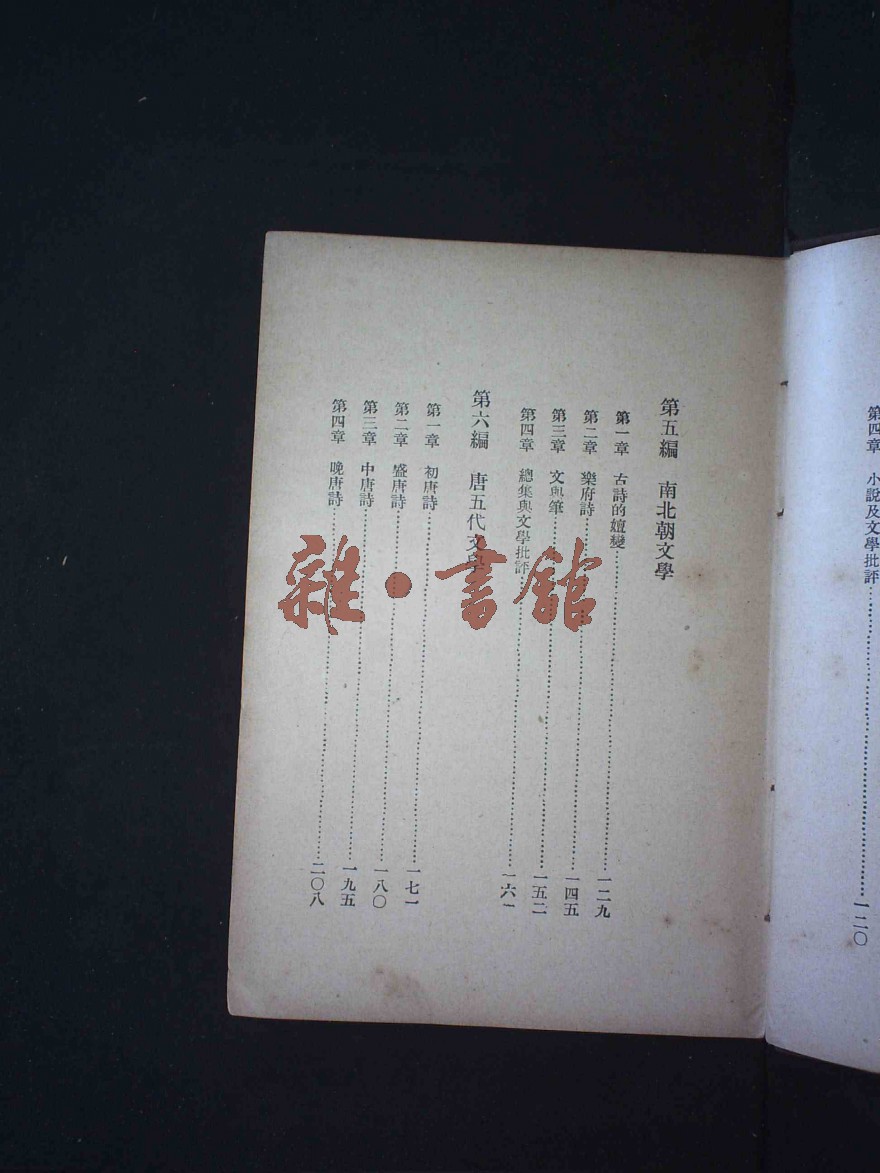 第四章 小説及文學批評……一二〇
第五編 南北朝文學
第一章 古詩的嬗變……一二九
第二章 樂府詩……一四五
第三章 文與筆……一五二
第四章 總集與文學批評……一六一
第六編 唐五代文學
第一章 初唐詩……一七一
第二章 盛唐詩……一八〇
第三章 中唐詩……一九五
第四章 晚唐詩……二〇八
雜·書館